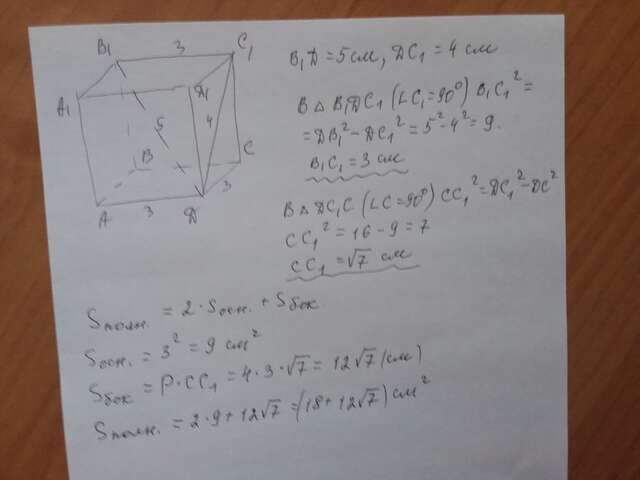 B₁ 3 C₁
A₁ D₁
4
5
B C
3
A 3 D
B₁D = 5 см, DC₁ = 4 см
В △ B₁DC₁ (∠C₁ = 90°) B₁C₁² =
= DB₁² - DC₁² = 5² - 4² = 9.
B₁C₁ = 3 см
В △ DC₁C (∠C = 90°) CC₁² = DC₁² - DC²
CC₁² = 16 - 9 = 7
CC₁ = √7 см
Sполн. = 2 · Sосн. + Sбок.
Sосн. = 3² = 9 см²
Sбок = P · CC₁ = 4 · 3 · √7 = 12√7 (см)
Sполн. = 2 · 9 + 12√7 = (18 + 12√7) см²